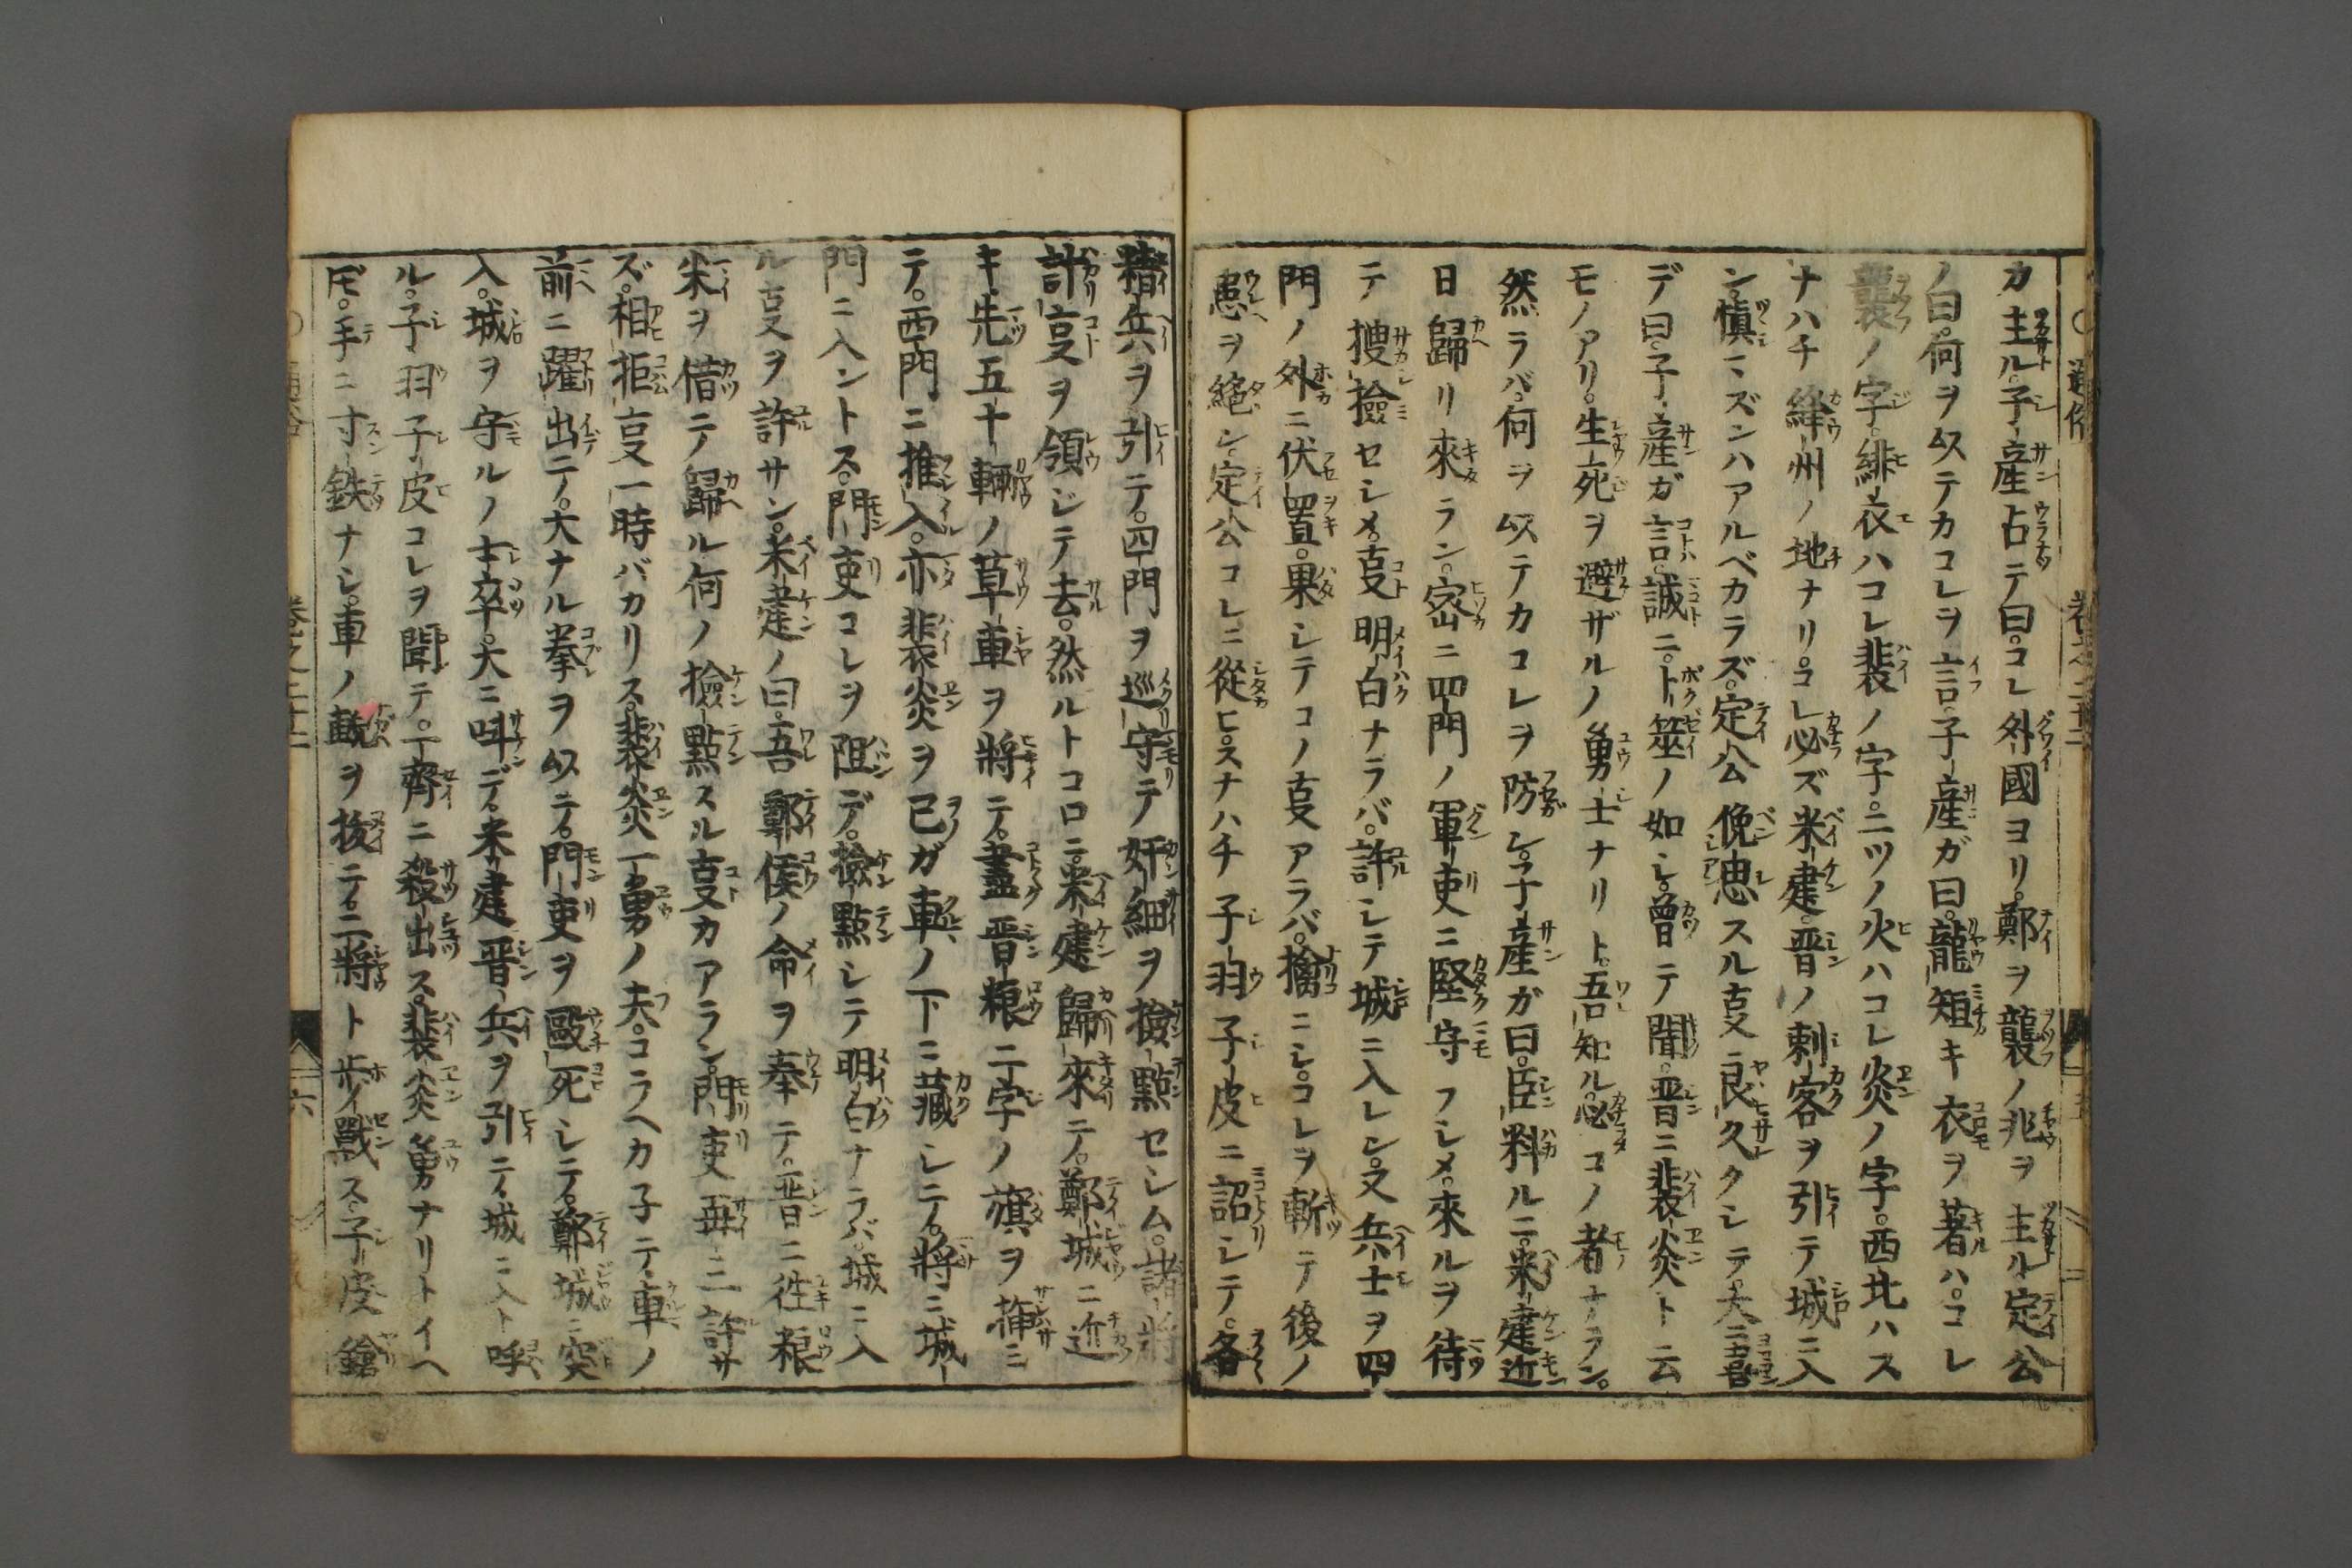 カ主ル。子産占テ曰。コレ外國ヨリ。鄭ヲ襲ノ兆ヲ主ル定公
ノ曰。何ヲ以テカコレヲ言。子産ガ曰。龍短キ衣ヲ著ハ。コレ
襲ノ字。緋衣ハコレ裴ノ字。二ツノ火ハコレ炎ノ字。西北ハス
ナハチ絳州ノ地ナリ。コレ必ズ米建。晋ノ刺客ヲ引テ城ニ入
ン。愼ミズンハアルベカラズ。定公俛思スル㕝良久クシテ。大ニ喜
デ曰。子産ガ言。誠ニ。卜筮ノ如シ。曽テ聞。晋ニ裴炎ト云
モノアリ。生死ヲ避ザルノ勇士ナリト。吾知ル。必コノ者ナラン。
然ラバ。何ヲ以テカコレヲ防シ。子産ガ曰。臣料ルニ。米建近
日歸リ來ラン。宻ニ四門ノ軍吏ニ堅守フシメ。來ルヲ待
テ搜撿セシメ。㕝明白ナラバ。許シテ城ニ入レシ。又兵士ヲ四
門ノ外ニ伏置。果シテコノ㕝アラバ。擒ニシ。コレヲ斬テ後ノ
患ヲ絕シ。定公コレニ從ヒ。スナハチ子羽子皮ニ詔シテ。各
精兵ヲ引テ。四門ヲ巡守テ奸細ヲ撿點セシム。諸將
計㕝ヲ領ジテ去。然ルトコロニ。米建歸來テ。鄭城ニ近
キ。先五十輛ノ草車ヲ將テ。盡晋粮二字ノ旗ヲ揷ミ
テ。西門ニ推入。亦裴炎ヲ已ガ車ノ下ニ藏シテ。將ニ城
門ニ入ントス。門吏コレヲ阻デ。撿點シテ明白ナラバ。城ニ入
ル㕝ヲ許サン。米建ノ曰。吾鄭侯ノ命ヲ奉テ。晋ニ徃粮
米ヲ借テ歸ル何ノ撿點スル㕝カアラン。門吏再三許サ
ズ。相拒㕝一時バカリス。裴炎一勇ノ夫。コラヘカ子テ。車ノ
前ニ躍出テ。大ナル拳ヲ以テ。門吏ヲ毆死シテ。鄭城ニ突
入。城ヲ守ルノ士卒。大ニ叫デ。米建晋兵ヲ引テ。城ニ入ト呼
ル。子羽子皮コレヲ聞テ。一齊ニ殺出ス。裴炎勇ナリトイヘ
𪜈。手ニ寸鉄ナシ。車ノ轅ヲ拔テ。二將ト步戰ス。子皮鎗